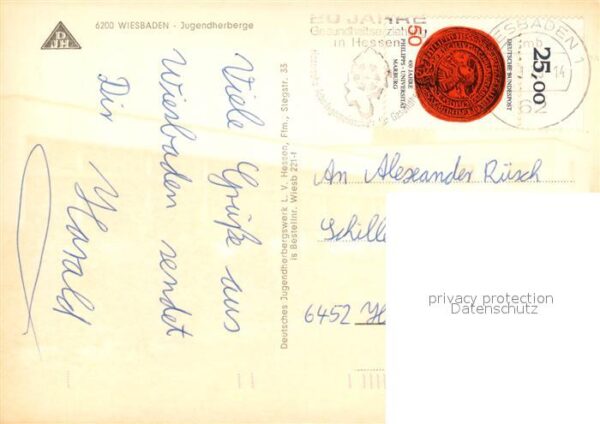 6200 WIESBADEN - Jugendherberge
DJH
Viele Grüße aus
Wiesbaden sendet
Dir
Harald
Deutsches Jugendherbergswerk L. V. Hessen, Ffm., Stegstr. 33
is Bestellnr. Wiesb 221-f
80 JAHRE
Gesundheitserziehung
in Hessen
50
450 JAHRE
PHILIPPS-UNIVERSITÄT
MARBURG
DEUTSCHE BUNDESPOST
25,00
WIESBADEN 1
mb
14
62
An Alexander Rüsch
Schille
6452 H
privacy protection
Datenschutz